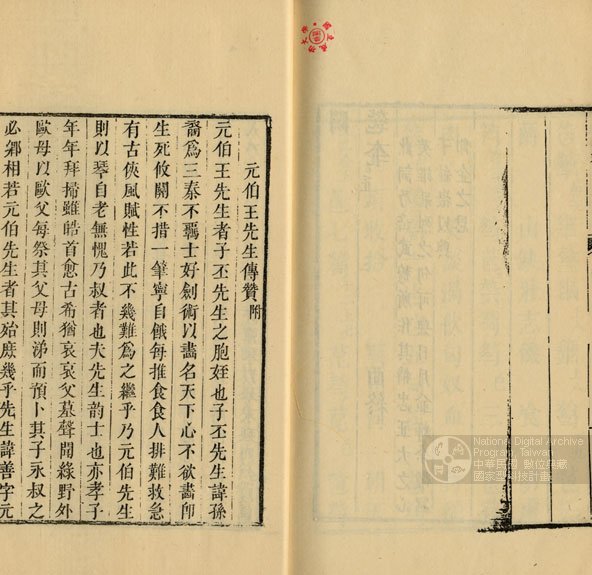 元伯王先生傳贊附
元伯王先生者子丕先生之胞姪也子丕先生諱孫
裔為三泰不羈士好劍術以畵名天下心不欲畵卽
生死攸關不措一筆寧自餓每推食食人排難救急
有古俠風賦性若此不幾難為之繼乎乃元伯先生
則以琴自老無愧乃叔者也夫先生韵士也亦孝子
年年拜掃雖皓首愈古希猶哀哀父墓聲聞綠野外
歐母以歐父每祭其父母則涕而預卜其子永叔之
必鄉相若元伯先生者其殆庶幾乎先生諱善字元
National Digital Archive
Program, Taiwan
中華民國 數位典藏
國家型科技計畫